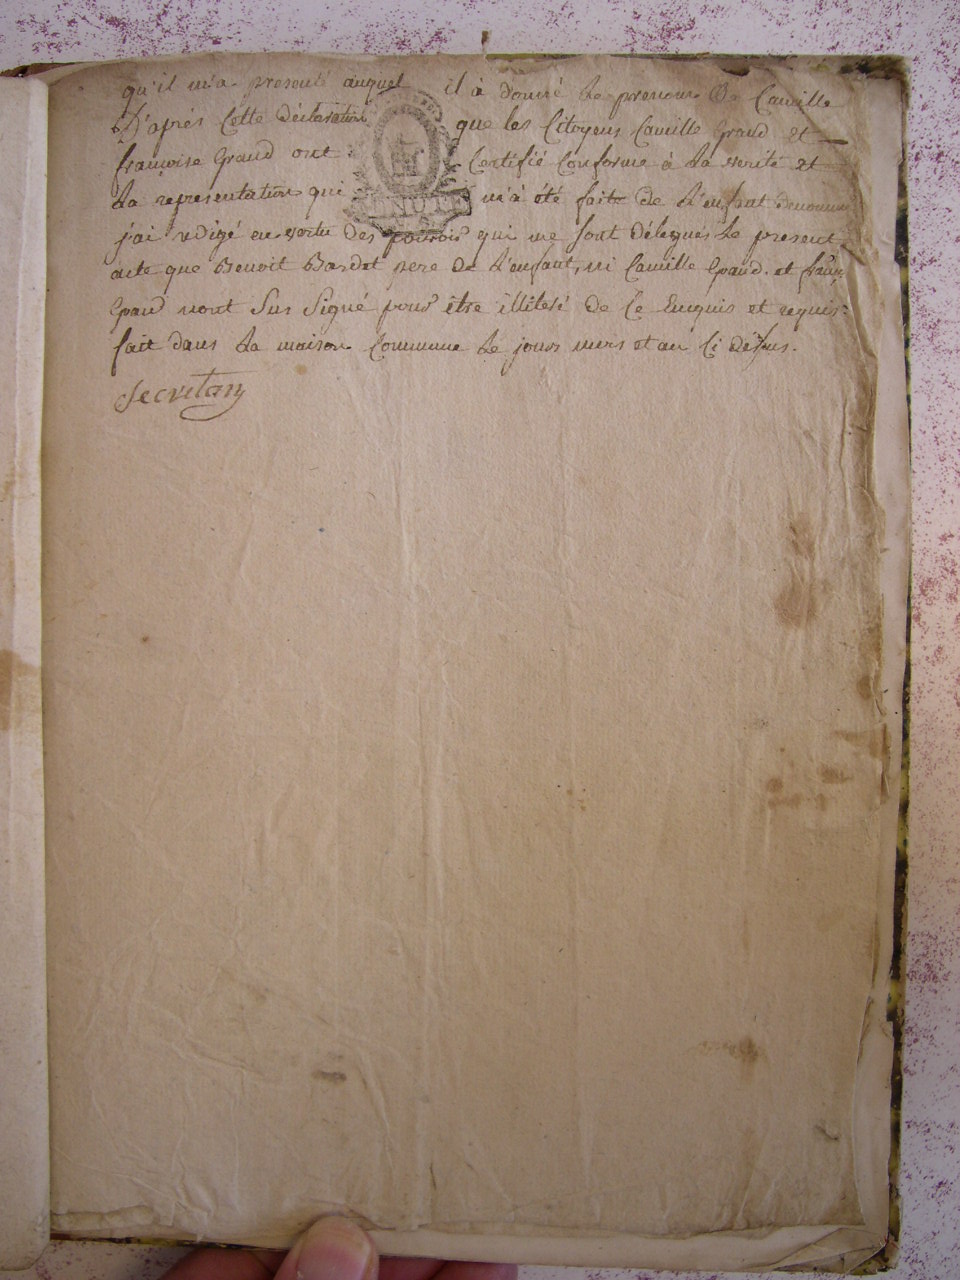 qu'il m'a presenté auquel il à donné le prenom De Camille
D'aprés Cette declaration que les Citoyens Camille Graud et
françoise Graud ont Certifié Conforme à la verité et
la representation qui m'à été faite de L'enfant denommé
j'ai redigé en vertu des pouvoir qui me sont délégués le present
acte que Benoit Bardet pere de L'enfant, ni Camille Graud. et
Graud nont Sus Signé pour être illiteré de Ce Enquis et requis
fait dans la maison Commune le jours mers et an Ci déssus.
Secretan